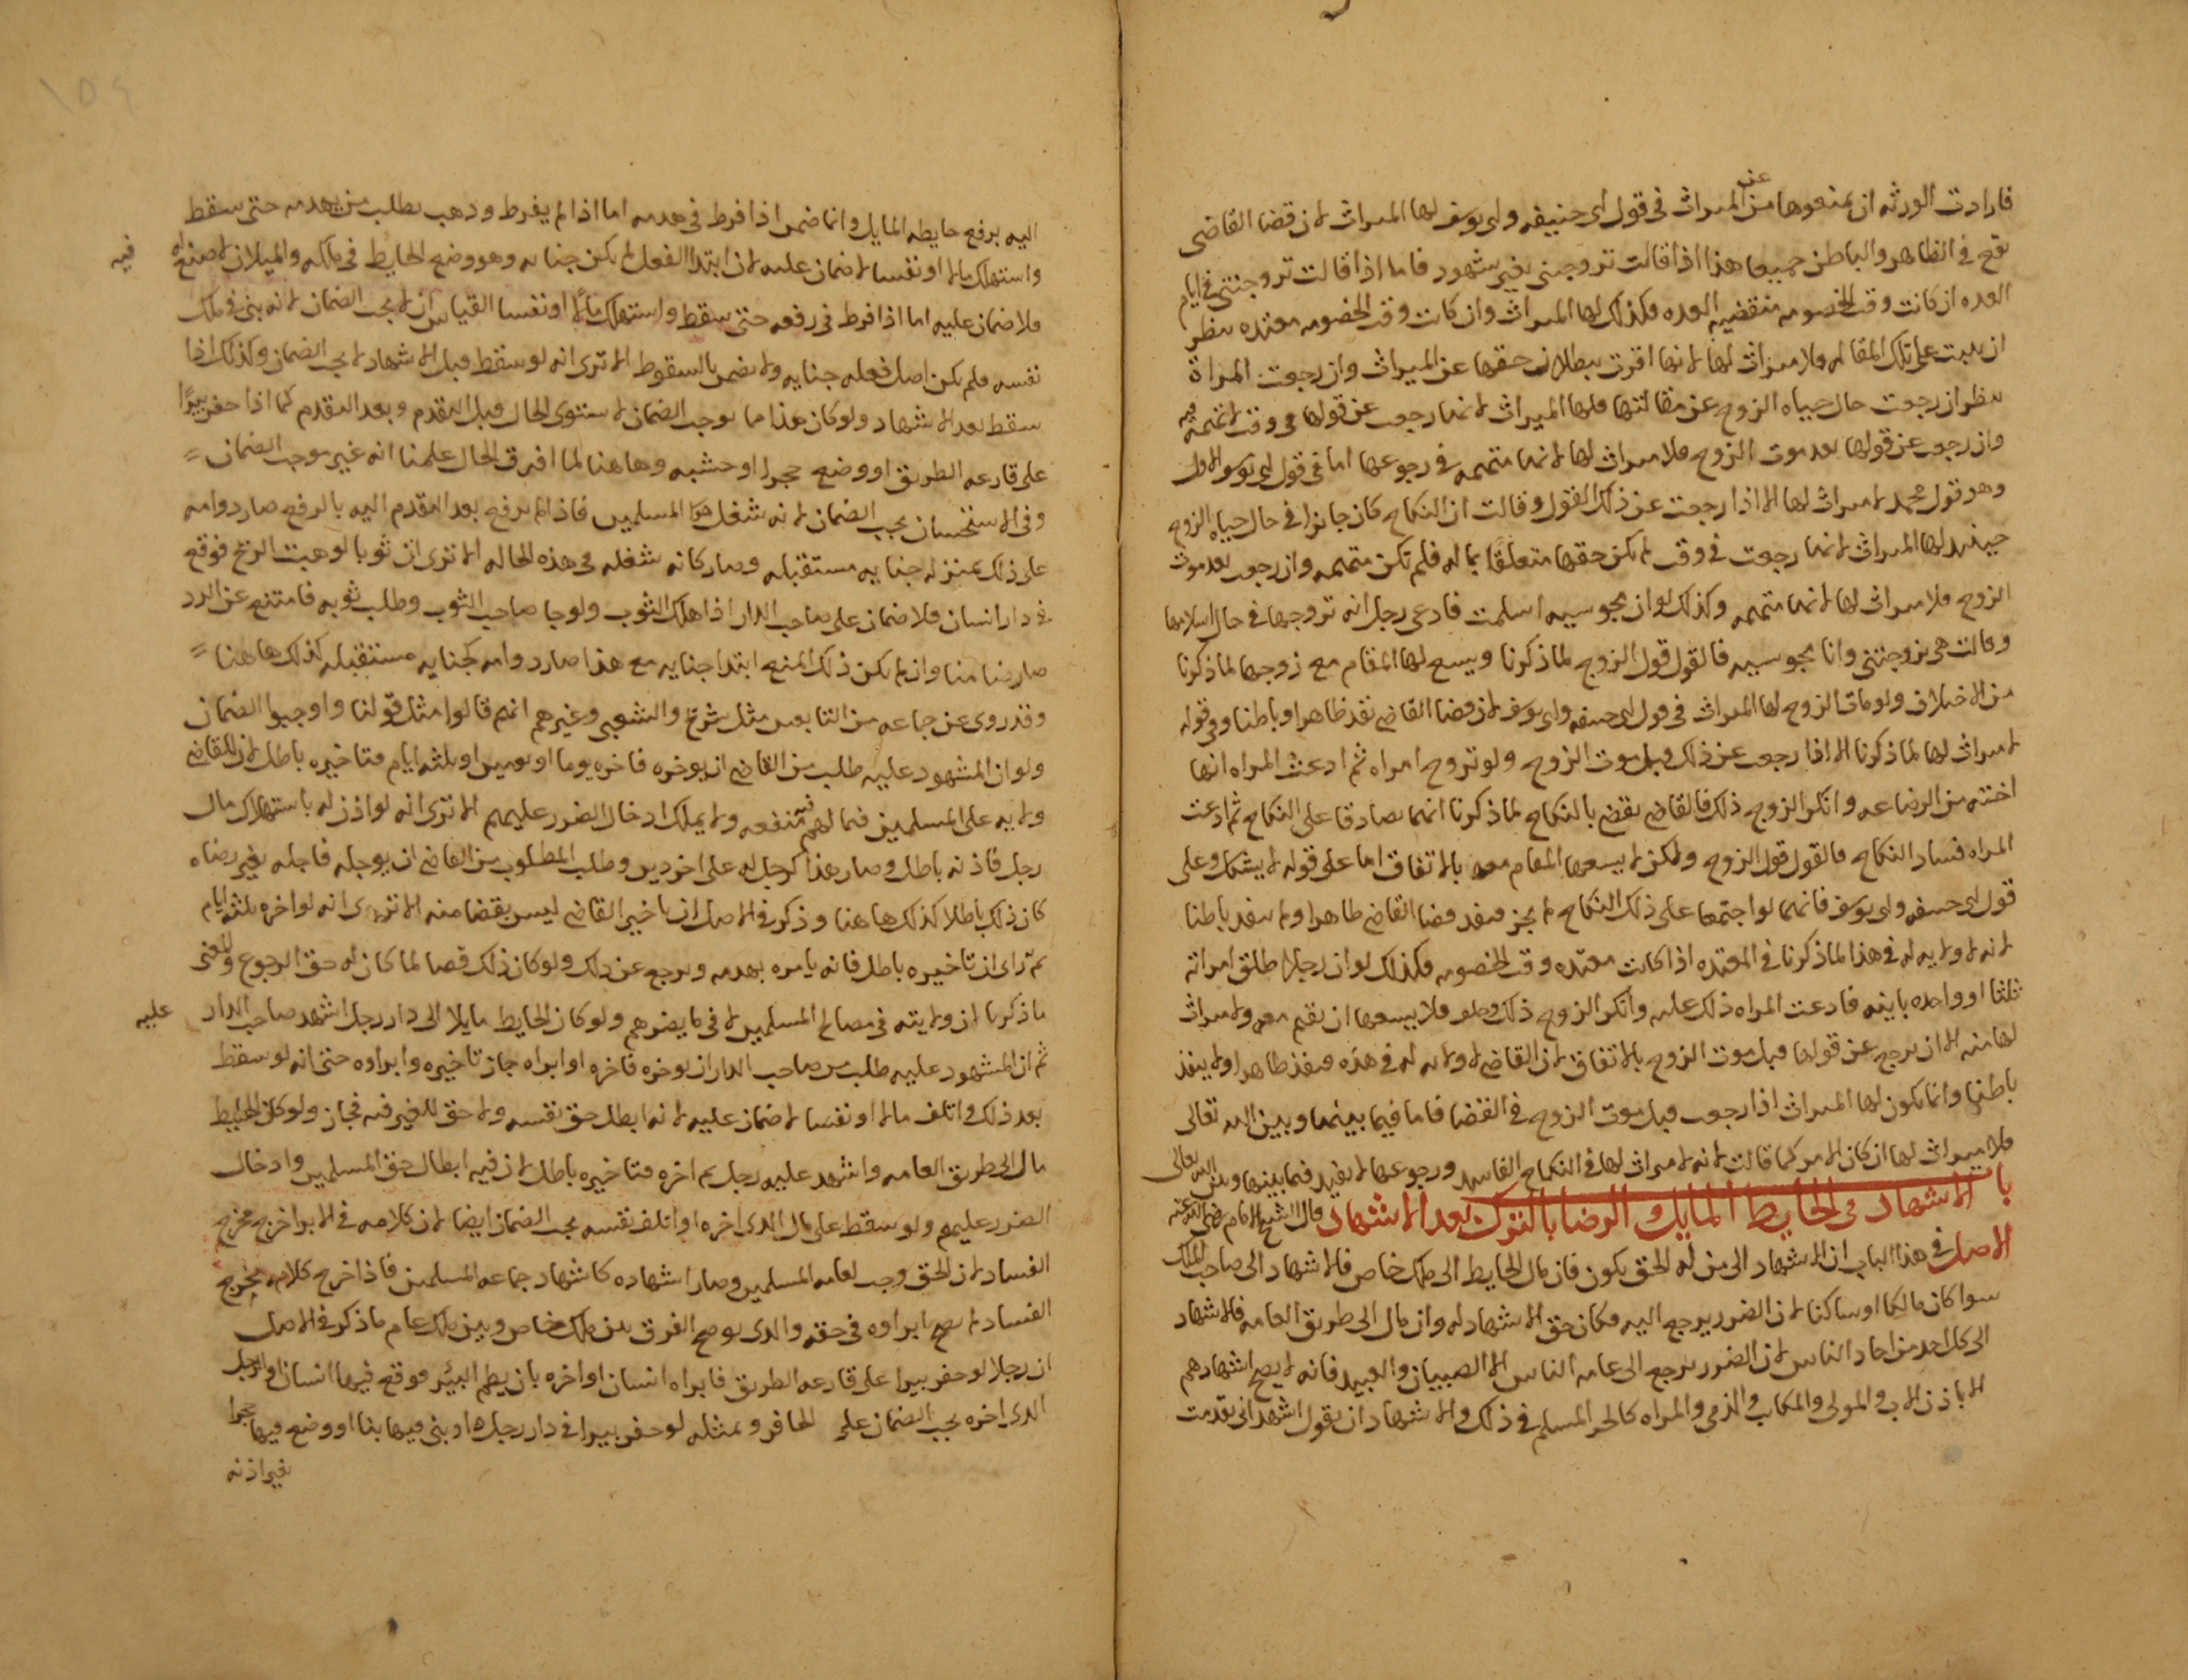 فارادت الورثه ان يمنعوها من الميراث فى قول ابى حنيفه وابى يوسف لها الميراث لان قضا القاضى
يقع فى الظاهر والباطن جميعا هذا اذا قالت تزوجنى بغير شهود فاما اذا قالت تزوجنى فى ايام
العده ان كانت وقت الخصومه منقضيه العده فكذلك لها الميراث وان كانت وقت الخصومه معتده ينظر
ان ثبتت على تلك المقاله فلا ميراث لها لانها اقرت ببطلان حقها عن الميراث وان رجعت المراة
ينظر ان رجعت حال حياه الزوج عن مقالتها فلها الميراث لانها رجعت عن قولها فى وقت لا تهمه فيه
وان رجعت عن قولها بعد موت الزوج فلا ميراث لها لانها متهمه فى رجوعها اما فى قول ابى يوسف الاول
وهو قول محمد لا ميراث لها الا اذا رجعت عن ذلك القول وقالت ان النكاح كان جايزا فى حال حياه الزوج
حينئذ لها الميراث لانها رجعت فى وقت لم يكن حقها متعلقا بماله فلم تكن متهمه وان رجعت بعد موت
الزوج فلا ميراث لها لانها متهمه وكذلك لو ان مجوسيه اسلمت فادعى رجل انه تزوجها فى حال اسلامها
وقالت هى تزوجتنى وانا مجوسيه فالقول قول الزوج لما ذكرنا ويسع لها المقام مع زوجها لما ذكرنا
من الاختلاف ولو مات الزوج لها الميراث فى قول ابى حنيفه وابى يوسف لان قضا القاضى نفذ ظاهرا وباطنا وفى قوله
لا ميراث لها لما ذكرنا الا اذا رجعت عن ذلك قبل موت الزوج ولو تزوج امراه ثم ادعت المراه انها
اخته من الرضاعه وانكر الزوج ذلك فالقاضى يقضى بالنكاح لما ذكرنا انهما تصادقا على النكاح ثم ادعت
المراه فساد النكاح فالقول قول الزوج ولكن لا يسعها المقام معه بالاتفاق اما على قوله لا يشكل وعلى
قول ابى حنيفه وابى يوسف فانهما لو اجتمعا على ذلك النكاح لم يجز فينفذ قضا القاضى ظاهرا ولا ينفذ باطنا
لانه لا ولايه له فى هذا لما ذكرنا فى المعتده اذا كانت معتده وقت الخصومه وكذلك لو ان رجلا طلق امراته
ثلثا او واحده باينه فادعت المراه ذلك عليه وانكر الزوج ذلك وحلف فلا يسعها ان تقيم معه ولا ميراث
لها منه الا ان ترجع عن قولها قبل موت الزوج بالاتفاق لان القاضى لا ولايه له فى هذه فينفذ ظاهرا ولا ينفذ
باطنا وانما يكون لها الميراث اذا رجعت قبل موت الزوج فى القضا فاما فيما بينها وبين الله تعالى
فلا ميراث لها ان كان الامر كما قالت لانه لا ميراث لها فى النكاح الفاسد ورجوعها لا يفيد فيما بينها وبين الله تعالى
باب الاشهاد فى الحايط المايل والرضا بالترك بعد الاشهاد قال الشيخ الامام رضى الله عنه
الاصل فى هذا الباب ان الاشهاد الى من له الحق يكون فان مال الحايط الى ملك خاص فالاشهاد الى صاحب الملك
سوا كان مالكا او ساكنا لان الضرر يرجع اليه فكان حق الاشهاد له وان مال الى طريق العامه فالاشهاد
الى كل احد من احاد الناس لان الضرر يرجع الى عامه الناس الا الصبيان والعبيد فانه لا يصح اشهادهم
الا باذن الاب والمولى والمكاتب والذمى والمراه كالحر المسلم فى ذلك والاشهاد ان يقول اشهد انى تقدمت
اليه برفع حايطه المايل وانما ضمن اذا فرط فى هدمه اما اذا لم يفرط وذهب يطلب من يهدمه حتى سقط
واستهلك مالا او نفسا لا ضمان عليه لان ابتدا الفعل لم يكن جنايه وهو وضع الحايط فى ملكه والميلان لا صنع له فيه
فلا ضمان عليه اما اذا فرط فى رفعه حتى سقط واستهلك مالا او نفسا القياس ان لا يجب الضمان لانه بنى فى ملك
نفسه فلم يكن اصل فعله جنايه ولا يضمن بالسقوط الا ترى انه لو سقط قبل الاشهاد لا يجب الضمان وكذلك اذا
سقط بعد الاشهاد ولو كان هذا مما يوجب الضمان لاستوى الحال قبل التقدم وبعد التقدم كما اذا حفر بيرًا
على قارعه الطريق او وضع حجرا او خشبه وها هنا لما افترق الحال علمنا انه غير موجب الضمان
وفى الاستحسان يجب الضمان لانه شغل هوا المسلمين فاذا لم يرفع بعد التقدم اليه بالرفع صار دوامه
على ذلك بمنزله جنايه مستقبله وصار كانه شغله فى هذه الحاله الا ترى ان ثوبا لو هبت الريح فوقع
فى دار انسان فلا ضمان على صاحب الدار اذا هلك الثوب ولو جا صاحب الثوب وطلب ثوبه فامتنع عن الرد
صار ضامنا وان لم يكن ذلك المنع ابتدا جنايه مع هذا صار دوامه كجنايه مستقبله كذلك ها هنا
وقد روى عن جماعه من التابعين مثل شريح والشعبى وغيرهم انهم قالوا مثل قولنا واوجبوا الضمان
ولو ان المشهود عليه طلب من القاضى ان يوخره فاخره يوما او يومين او ثلثه ايام فتاخيره باطل لان للقاضى
ولايه على المسلمين فيما لهم فيه منفعه ولا يملك ادخال الضرر عليهم الا ترى انه لو اذن له باستهلاك مال
رجل فاذنه باطل وصار هذا كرجل له على اخر دين وطلب المطلوب من القاضى ان يوجله فاجله بغير رضاه
كان ذلك باطلا كذلك ها هنا وذكر فى الاصل ان تاخير القاضى ليس بقضا منه الا ترى انه لو اخره ثلثه ايام
ثم راى ان تاخيره باطل فانه يامره بهدمه ويرجع عن ذلك ولو كان ذلك قضا لما كان له حق الرجوع والمعنى
ما ذكرنا ان ولايته فى مصالح المسلمين لا فى ما يضرهم ولو كان الحايط مايلا الى دار رجل اشهد صاحب الدار عليه
ثم ان المشهود عليه طلب من صاحب الدار ان يوخره فاخره او ابراه جاز تاخيره وابراوه حتى انه لو سقط
بعد ذلك واتلف مالا او نفسا لا ضمان عليه لانه ابطل حق نفسه ولا حق للغير فيه فجاز ولو كان الحايط
مال الى طريق العامه واشهد عليه رجل ثم اخره فتاخيره باطل لان فيه ابطال حق المسلمين وادخال
الضرر عليهم ولو سقط على مال الذى اخره او اتلف نفسه يجب الضمان ايضا لان كلامه فى الابرا خرج مخرج
الفساد لان الحق وجب لعامه المسلمين وصار اشهاده كاشهاد جماعه المسلمين فاذا خرج كلامه مخرج
الفساد لا يصح ابراوه فى حقه والذى يوضح الفرق بين ملك خاص وبين ملك عام ما ذكر فى الاصل
ان رجلا لو حفر بيرا على قارعه الطريق فابراه انسان او اخره بان يطم البئر فوقع فيها انسان او الرجل
الذى اخره يجب الضمان على الحافر وبمثله لو حفر بيرا فى دار رجل او بنى فيها بنا او وضع فيها حجرا
بغير اذنه